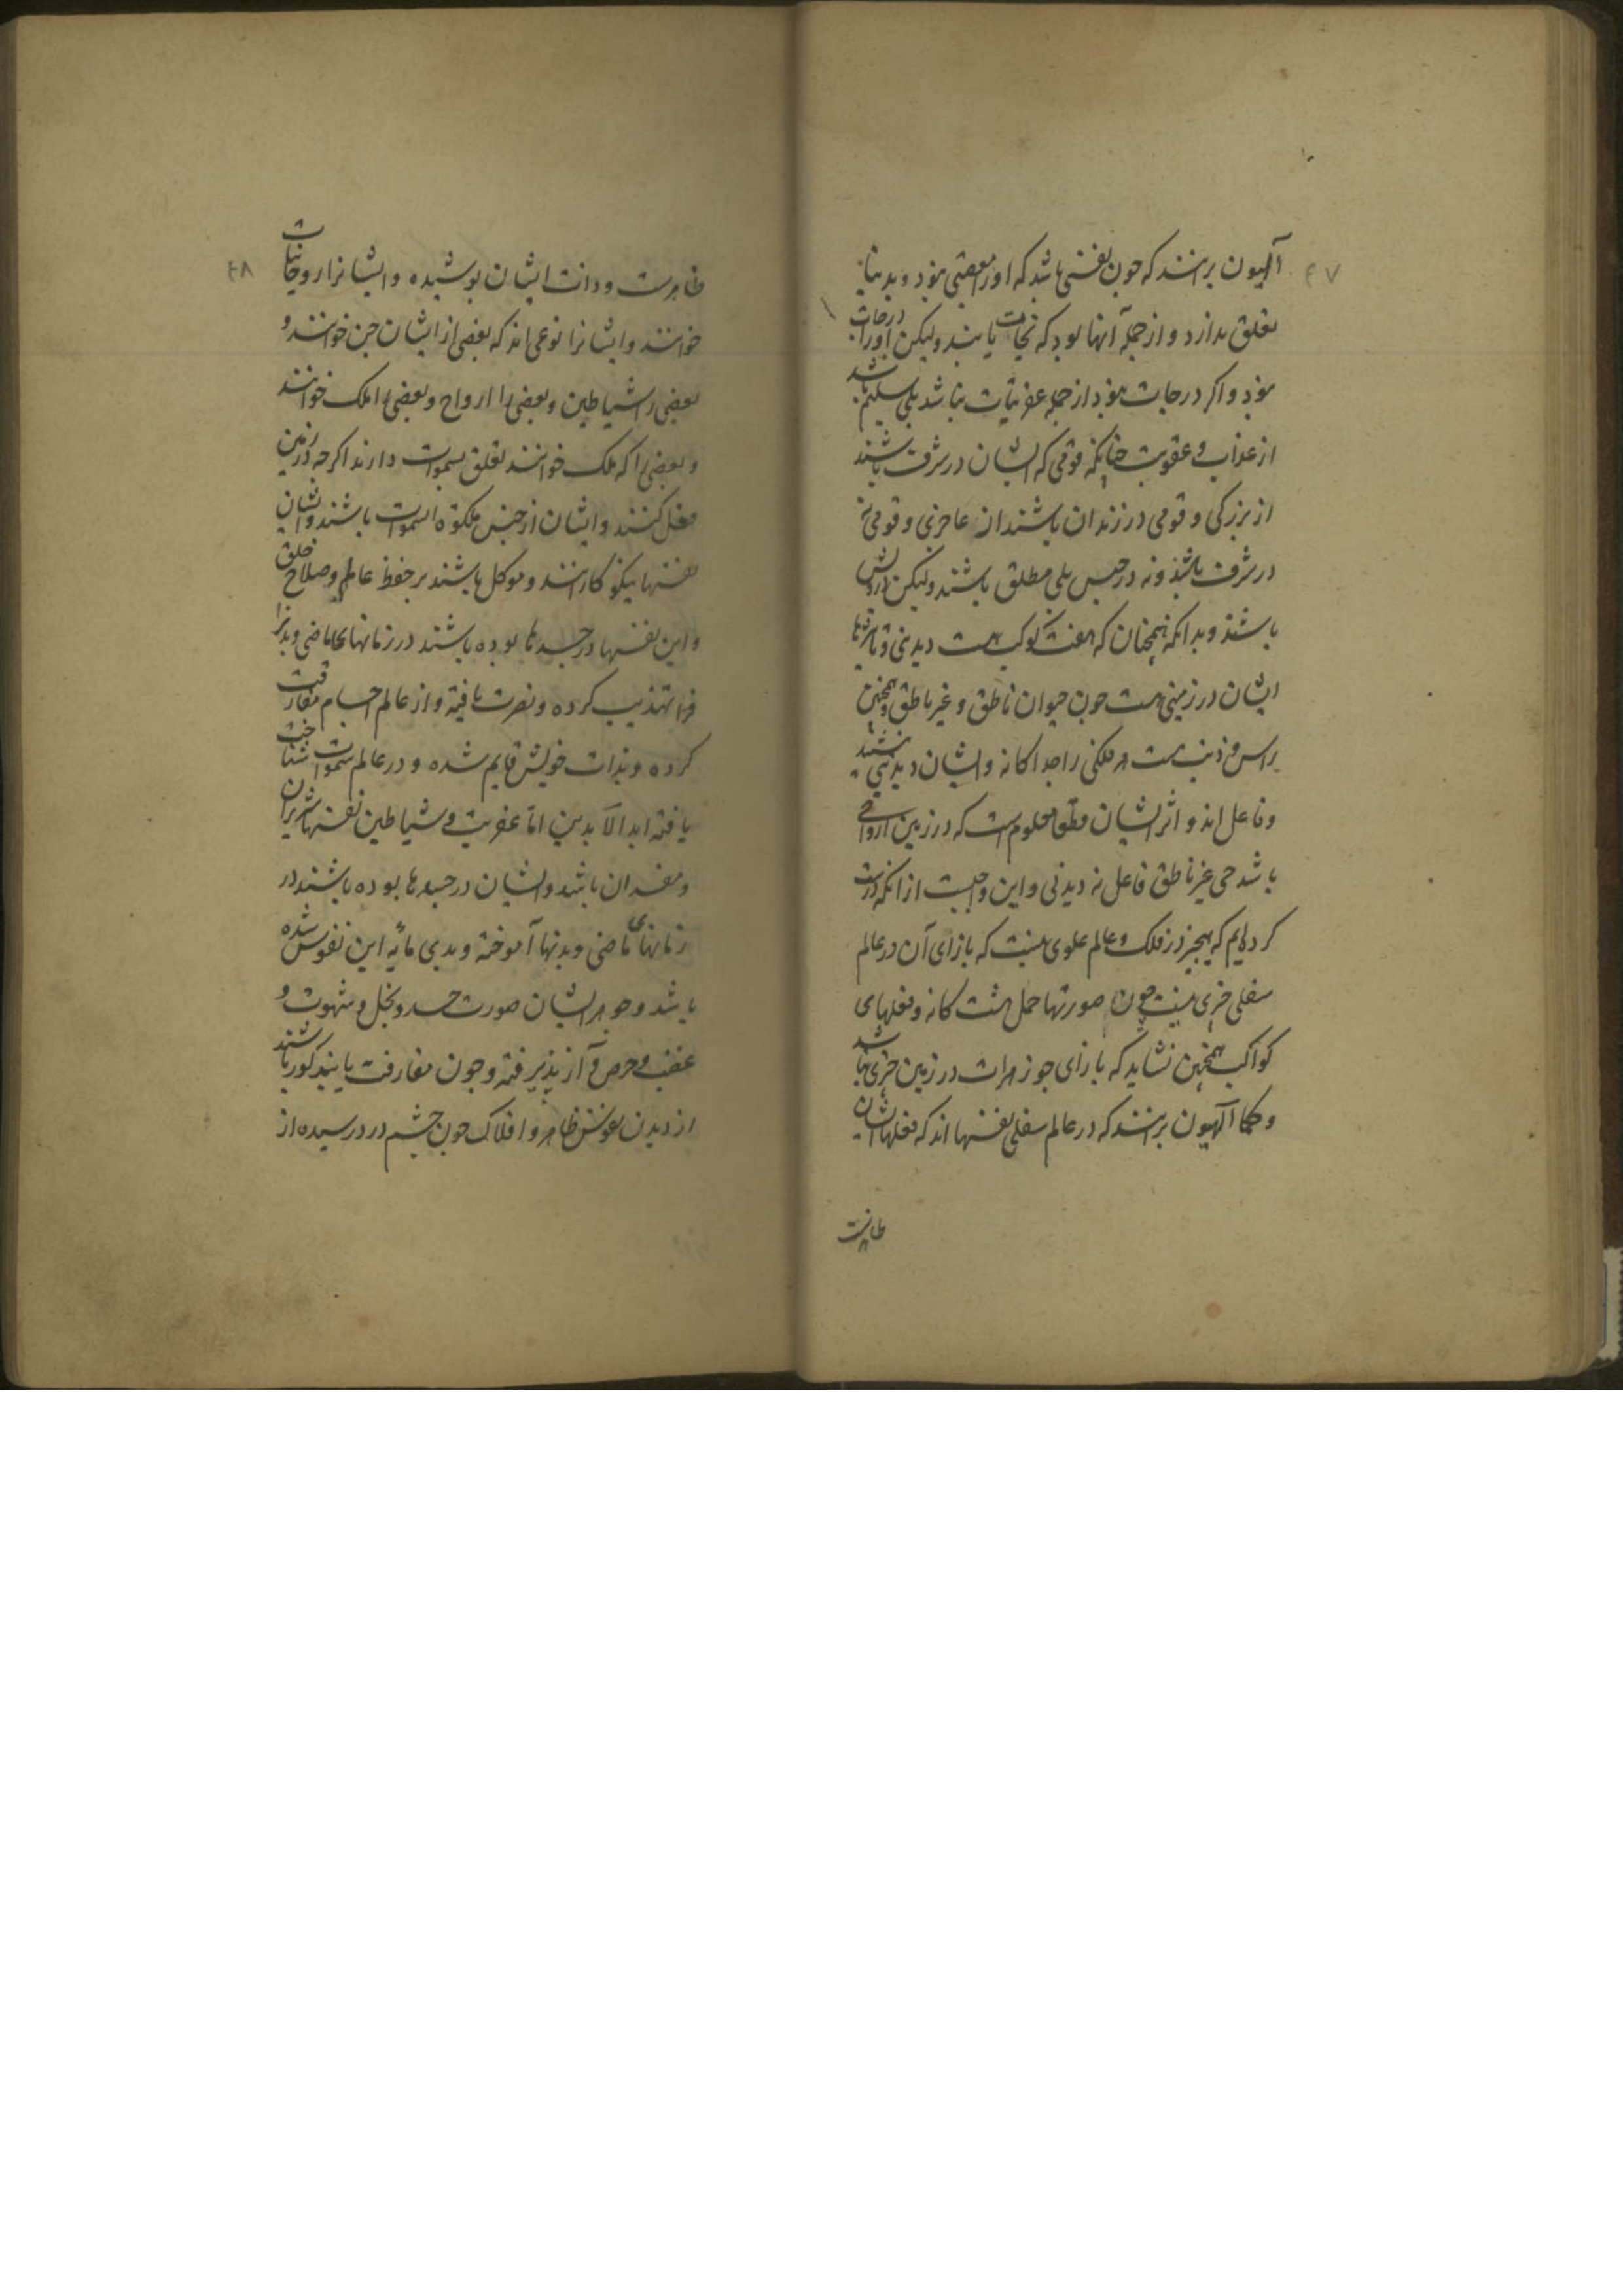 ۴۷
آلهیون برانند که چون نفسی باشد که او را معصیتی نبود و بدینا
تعلق ندارد و از جمله آنها بود که نجات یابند ولیکن او را درجات
نبود و اگر درجات نبود از جمله عفریتیات نباشد بلی سلیم باشد
از عذاب و عقوبت چنانکه قومی که ایشان در شرف باشند
از بزرگی و قومی در زندان باشند از عاجزی و قومی نه
در شرف باشند و نه در حبس بلی مطلق باشند ولیکن درویش
باشند و بدانکه همچنان که هفت کوکب هست دیدنی و تاثیرها
ایشان در زمین هست چون حیوان ناطق و غیر ناطق و همچنین
راس و ذنب هست هر فلکی را جداگانه و ایشان دیدنی نیستند
و فاعل اند و اثر ایشان قطعا معلوم است که در زمین ارواحی
باشد حی غیر ناطق فاعل نه دیدنی و این واجبست از انکه درست
کرده ایم که هیچیز در فلک و عالم علوی نیست که بازای آن در عالم
سفلی چیزی نیست چون صورتها حمل هشت کانه و فعلهای
کواکب همچنین نشاید که بازای جوزهرات در زمین چیزی نباشد
و حکما آلهیون برانند که در عالم سفلی نفسها اند که فعلهاشان
ظاهرست
۴۸
ظاهرست و ذات ایشان پوشیده و ایشانرا روحانیات
خوانند و ایشانرا نوعی اند که بعضی از ایشان جن خوانند و
بعضی را شیاطین و بعضی را ارواح و بعضی را ملک خوانند
و بعضی را که ملک خوانند تعلق بسموات دارند اگرچه در زمین
فعل کنند و ایشان از جنس ملکوة السموات باشند و ایشان
نفسها نیکو کارانند و موکل باشند بر حفظ عالم و صلاح خلق
و این نفسها در جسدها بوده باشند در زمانهای ماضی و بدنرا
فرا تهذیب کرده و نصرت یافته و از عالم اجسام مفارقت
کرده و بذات خویش قایم شده و در عالم سموات شناخت
یافته ابد الآبدین اما عفریت و شیاطین نفسهای شریران
و مفسدان باشد و ایشان در جسدها بوده باشند در
زمانهای ماضی و بدنها آموخته و بدی مایه این نفوس شده
باشد و جوهر ایشان صورت حسد و بخل و شهوت و
غضب و حرص و آز پذیرفته و چون مفارقت یابند کور باشند
از دیدن نفوس ظاهر و افلاک چون چشم درد رسیده از